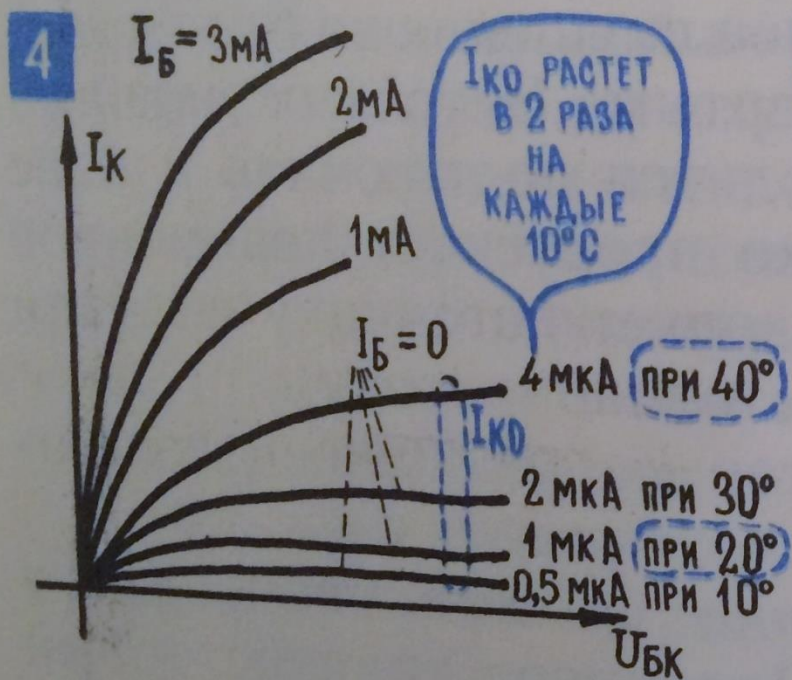 4
IБ = 3мА
2мА
1мА
IК
IКО РАСТЕТ
В 2 РАЗА
НА
КАЖДЫЕ
10°С
IБ = 0
4 МКА ПРИ 40°
IКО
2 МКА ПРИ 30°
1 МКА ПРИ 20°
0,5 МКА ПРИ 10°
UБК